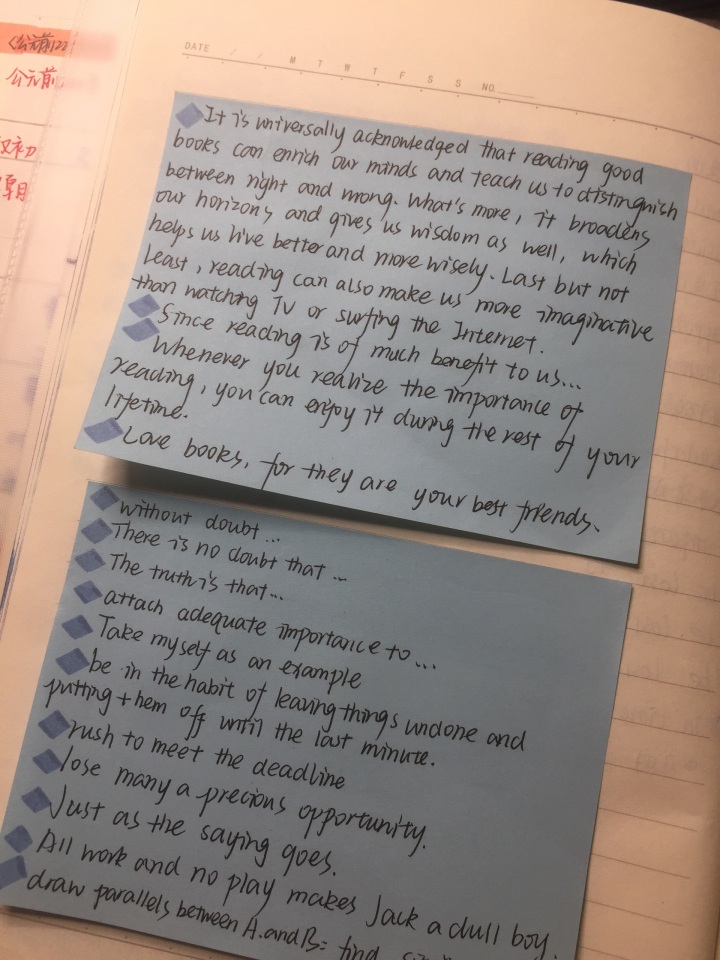 公元前
公元前
汉初
朝
DATE / / M T W T F S S NO.
It is universally acknowledged that reading good
books can enrich our minds and teach us to distinguish
between right and wrong. What's more, it broadens
our horizons and gives us wisdom as well, which
helps us live better and more wisely. Last but not
Least, reading can also make us more imaginative
than watching TV or surfing the Internet.
Since reading is of much benefit to us...
Whenever you realize the importance of
reading, you can enjoy it during the rest of your
lifetime.
Love books, for they are your best friends.
without doubt...
There is no doubt that...
The truth is that...
attach adequate importance to...
Take myself as an example
be in the habit of leaving things undone and
putting them off until the last minute.
rush to meet the deadline
lose many a precious opportunity.
Just as the saying goes.
All work and no play makes Jack a dull boy.
draw parallels between A. and B: find